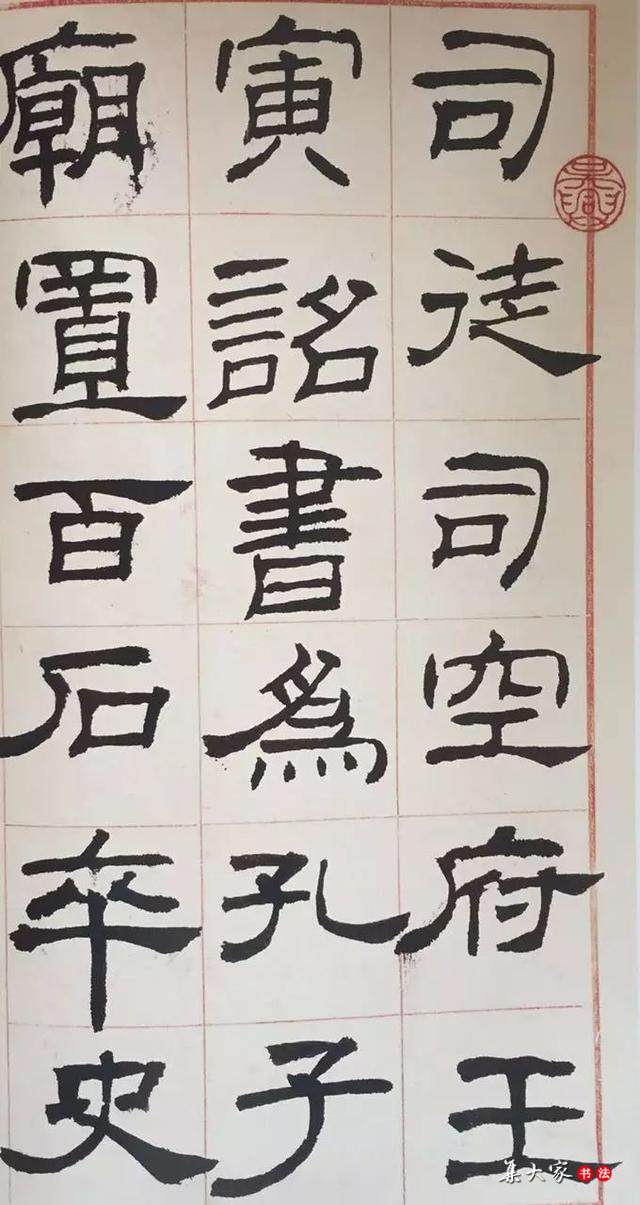 司徒司空府壬
寅詔書爲孔子
廟置百石卒史
集大家书法